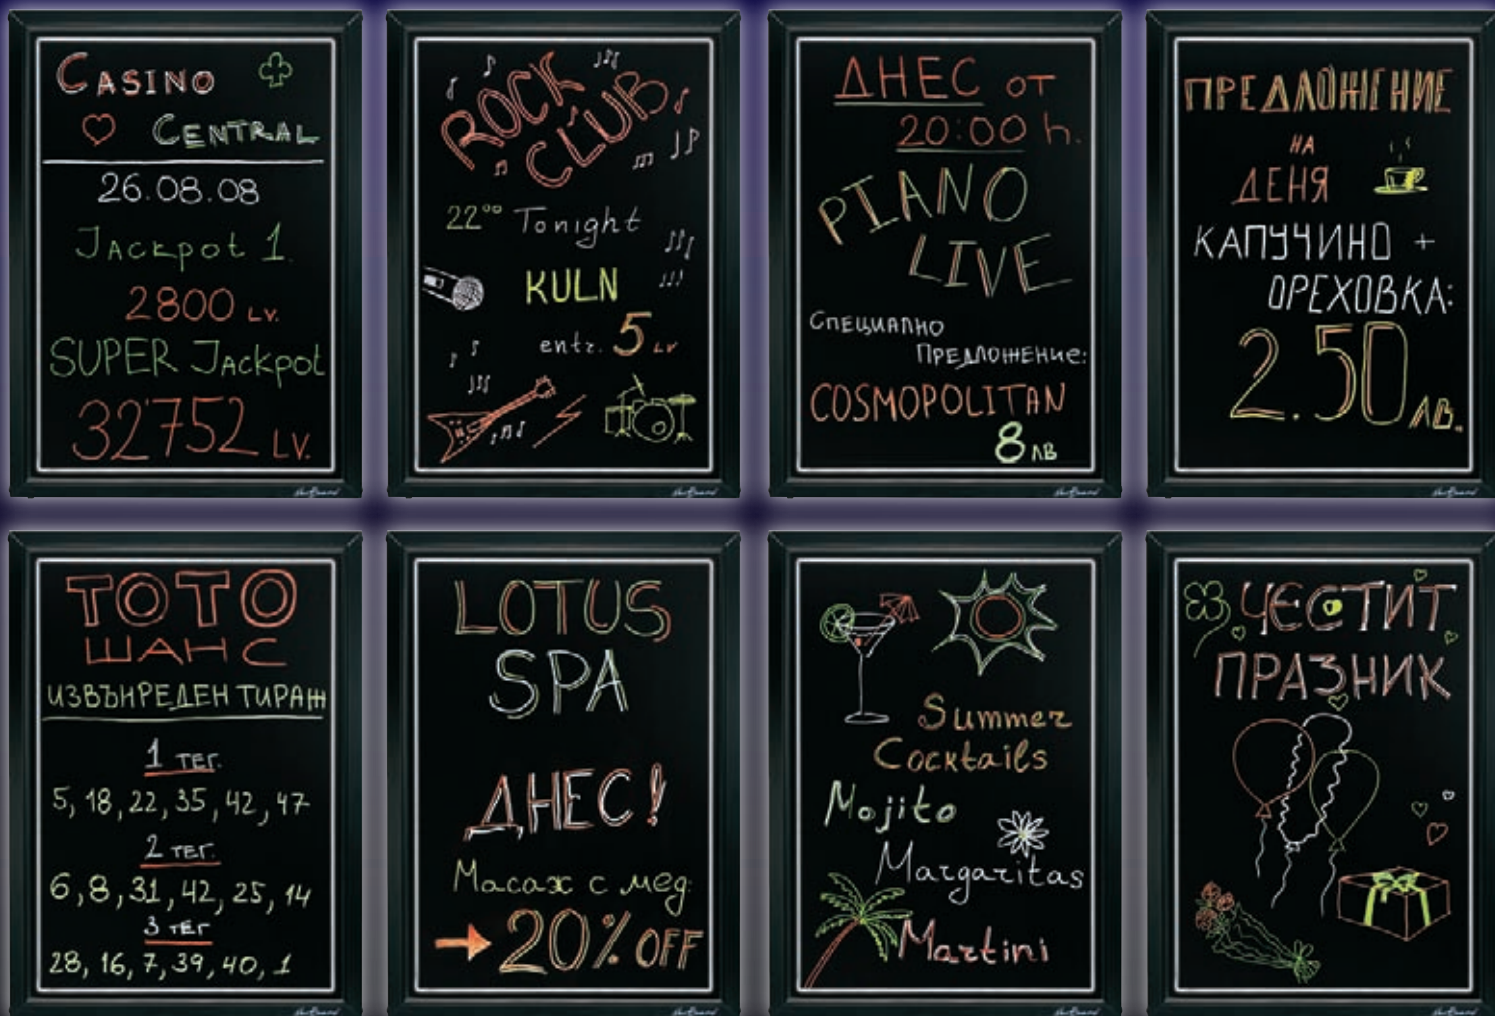 CASINO
CENTRAL
26.08.08
Jackpot 1
2800 LV.
SUPER Jackpot
32'752 LV.
ROCK
CLUB
22°° Tonight
KULN
entr. 5 LV
ДНЕС ОТ
20:00 h.
PIANO
LIVE
СПЕЦИАЛНО
ПРЕДЛОЖЕНИЕ:
COSMOPOLITAN
8 ЛВ
ПРЕДЛОЖЕНИЕ
НА
ДЕНЯ
КАПУЧИНО +
ОРЕХОВКА:
2.50 ЛВ.
ТОТО
ШАНС
ИЗВЪНРЕДЕН ТИРАЖ
1 ТЕГ.
5, 18, 22, 35, 42, 47
2 ТЕГ.
6, 8, 31, 42, 25, 14
3 ТЕГ
28, 16, 7, 39, 40, 1
LOTUS
SPA
ДНЕС!
Масаж с мед:
20% OFF
Summer
Cocktails
Mojito
Margaritas
Martini
ЧЕСТИТ
ПРАЗНИК